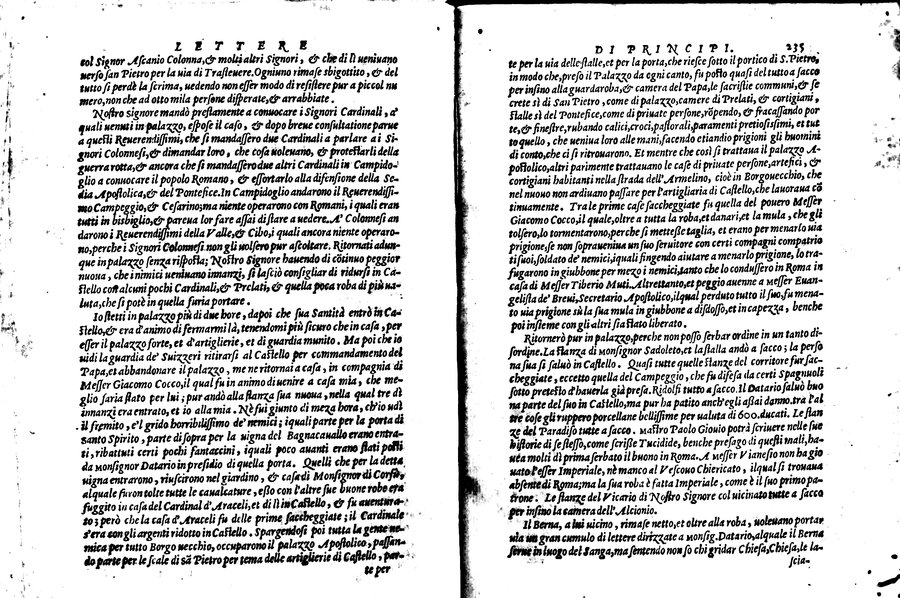 LETTERE
col Signor Ascanio Colonna, & molti altri Signori, & che di lì ueniuano
uerso san Pietro per la uia di Trasteuere. Ogniuno rimase sbigottito, & del
tutto si perdè la scrima, uedendo non esser modo di resistere pur a piccol nu
mero, non che ad otto mila persone disperate, & arrabbiate.
Nostro signore mandò prestamente a conuocare i Signori Cardinali, a'
quali uenuti in palazzo, espose il caso, & dopo breue consultatione parue
a questi Reuerendissimi, che si mandassero due Cardinali a parlare a i Si
gnori Colonnesi, & dimandar loro, che cosa uoleuano, & protestarli della
guerra rotta, & ancora che si mandassero due altri Cardinali in Campido-
glio a conuocare il popolo Romano, & essortarlo alla difensione della Se
dia Apostolica, & del Pontefice. In Campidoglio andarono il Reuerendissi-
mo Campeggio, & Cesarino; ma niente operarono con Romani, i quali eran
tutti in bisbiglio, & pareua lor fare assai di stare a uedere. A' Colonnesi an
darono i Reuerendissimi della Valle, & Cibo, i quali ancora niente operaro-
no, perche i Signori Colonnesi non gli uolsero pur ascoltare. Ritornati adun-
que in palazzo senza risposta; Nostro Signore hauendo di cōtinuo peggior
nuoua, che i nimici ueniuano innanzi, si lasciò consigliar di ridursi in Ca-
stello con alcuni pochi Cardinali, & Prelati, & quella poca roba di più ua-
luta, che si potè in quella furia portare.
Io stetti in palazzo più di due hore, dapoi che sua Santità entrò in Ca-
stello, & era d'animo di fermarmi là, tenendomi più sicuro che in casa, per
esser il palazzo forte, et d'artiglierie, et di guardia munito. Ma poi che io
uidi la guardia de' Suizzeri ritirarsi al Castello per commandamento del
Papa, et abbandonare il palazzo, me ne ritornai a casa, in compagnia di
Messer Giacomo Cocco, il qual fu in animo di uenire a casa mia, che me-
glio saria stato per lui; pur andò alla stanza sua nuoua, nella qual tre dì
innanzi era entrato, et io alla mia. Nè fui giunto di meza hora, ch'io udì
il fremito, e'l grido horribilissimo de' nemici; i quali parte per la porta di
santo Spirito, parte di sopra per la uigna del Bagnacauallo erano entra-
ti, ributtati certi pochi fantaccini, i quali poco auanti erano stati posti
da monsignor Datario in presidio di quella porta. Quelli che per la detta
uigna entrarono, riuscirono nel giardino, & casa di Monsignor di Corfù,
al quale furon tolte tutte le caualcature, esso con l'altre sue buone robe era
fuggito in casa del Cardinal d'Araceli, et di lì in Castello, & fu auentura-
to; però che la casa d'Araceli fu delle prime saccheggiate; il Cardinale
s'era con gli argenti ridotto in Castello. Spargendosi poi tutta la gente ne-
mica per tutto Borgo uecchio, occuparono il palazzo Apostolico, passan-
do parte per le scale di sā Pietro per tema delle artiglierie di Castello, par-
te per
DI PRINCIPI. 235
te per la uia delle stalle, et per la porta, che riesce sotto il portico di S. Pietro,
in modo che, preso il Palazzo da ogni canto, fu posto quasi del tutto a sacco
per insino alla guardaroba, & camera del Papa, le sacristie communi, & se
crete sì di san Pietro, come di palazzo, camere di Prelati, & cortigiani,
stalle sì del Pontefice, come di priuate persone, rōpendo, & fracassando por
te, & finestre, rubando calici, croci, pastorali, paramenti pretiosissimi, et tut
to quello, che ueniua loro alle mani, facendo etiandio prigioni gli huomini
di conto, che ci si ritrouarono. Et mentre che così si trattaua il palazzo A-
postolico, altri parimente trattauano le case di priuate persone, artefici, &
cortigiani habitanti nella strada dell'Armelino, cioè in Borgouecchio, che
nel nuouo non ardiuano passare per l'artigliaria di Castello, che lauoraua cō
tinuamente. Tra le prime case saccheggiate fu quella del pouero Messer
Giacomo Cocco, il quale, oltre a tutta la roba, et danari, et la mula, che gli
tolsero, lo tormentarono, perche si mettesse taglia, et erano per menarlo uia
prigione, se non soprauueniua un suo seruitore con certi compagni compatrio
ti suoi, soldato de' nemici, i quali fingendo aiutare a menarlo prigione, lo tra-
fugarono in giubbone per mezo i nemici, tanto che lo condussero in Roma in
casa di Messer Tiberio Muti. Altrettanto, et peggio auenne a Messer Euan-
gelista de' Breui, Secretario Apostolico, il qual perduto tutto il suo, fu mena-
to uia prigione sù la sua mula in giubbone a disdosso, et in capezza, benche
poi insieme con gli altri sia stato liberato.
Ritornerò pur in palazzo, perche non posso serbar ordine in un tanto di-
sordine. La stanza di monsignor Sadoleto, et la stalla andò a sacco; la perso
na sua si saluò in Castello. Quasi tutte quelle stanze del corritore fur sac-
cheggiate, eccetto quella del Campeggio, che fu difesa da certi Spagnuoli
sotto pretesto d'hauerla già presa. Ridolfi tutto a sacco. Il Datario saluò buo
na parte del suo in Castello, ma pur ha patito anch'egli assai danno, tra l'al
tre cose gli ruppero porcellane bellissime per ualuta di 600. ducati. Le stan
ze del Paradiso tutte a sacco. Mastro Paolo Giouio potrà scriuere nelle sue
historie di se stesso, come scrisse Tucidide, benche presago di questi mali, ha-
uea molti dì prima serbato il buono in Roma. A Messer Vianesio non ha gio
uato l'esser Imperiale, nè manco al Vescouo Chiericato, il qual si trouaua
absente di Roma; ma la sua roba è fatta Imperiale, come è il suo primo pa-
trone. Le stanze del Vicario di Nostro Signore col uicinato tutte a sacco
per insino la camera dell'Alcionio.
Il Berna, a lui uicino, rimase netto, et oltre alla roba, uoleuano portar
uia un gran cumulo di lettere dirizzate a monsig. Datario, al quale il Berna
serue in luogo del Sanga, ma sentendo non sò chi gridar Chiesa, Chiesa, le la-
scia-